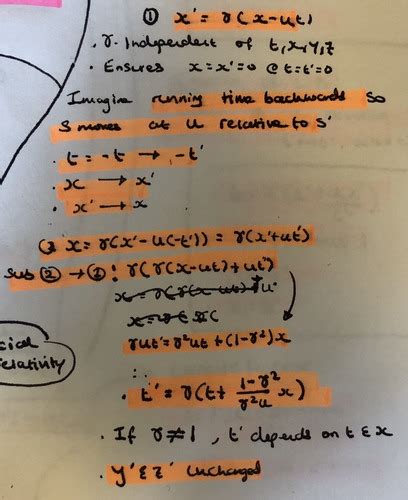 ① x' = γ(x-ut)
· γ. Independent of t,x,y,z
· Ensures x=x'=0 @ t=t'=0
Imagine running time backwards so
S moves at u relative to S'
· t = -t → -t'
· x → x'
· x' → x
② x = γ(x'-u(-t')) = γ(x'+ut')
Sub ② → ①: γ(γ(x-ut)+ut')
γut' = γ²ut + (1-γ²)x
∴
· t' = γ(t + 1-γ²/γ²u x)
· If γ≠1, t' depends on t & x
· y' & z' unchanged
relativity